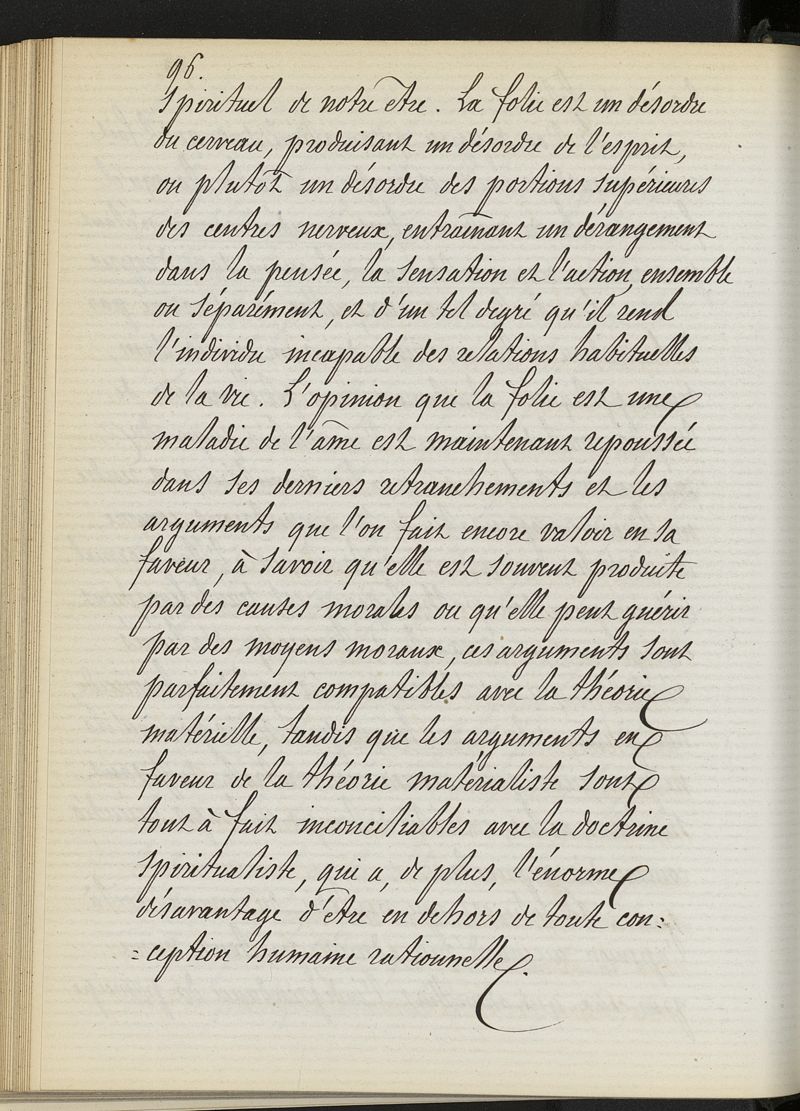 96.
Spirituel de notre être. La folie est un désordre
du cerveau, produisant un désordre de l'esprit,
ou plutôt un désordre des portions supérieures
des centres nerveux, entraînant un dérangement
dans la pensée, la sensation et l'action, ensemble
ou séparément, et d'un tel degré qu'il rend
l'individu incapable des relations habituelles
de la vie. L'opinion que la folie est une
maladie de l'âme est maintenant repoussée
dans ses derniers retranchements et les
arguments que l'on fait encore valoir en sa
faveur, à savoir qu'elle est souvent produite
par des causes morales ou qu'elle peut guérir
par des moyens moraux, ces arguments sont
parfaitement compatibles avec la théorie
matérielle, tandis que les arguments en
faveur de la théorie matérialiste sont
tout à fait inconciliables avec la doctrine
spiritualiste, qui a, de plus, l'énorme
désavantage d'être en dehors de toute con=
=ception humaine rationnelle.